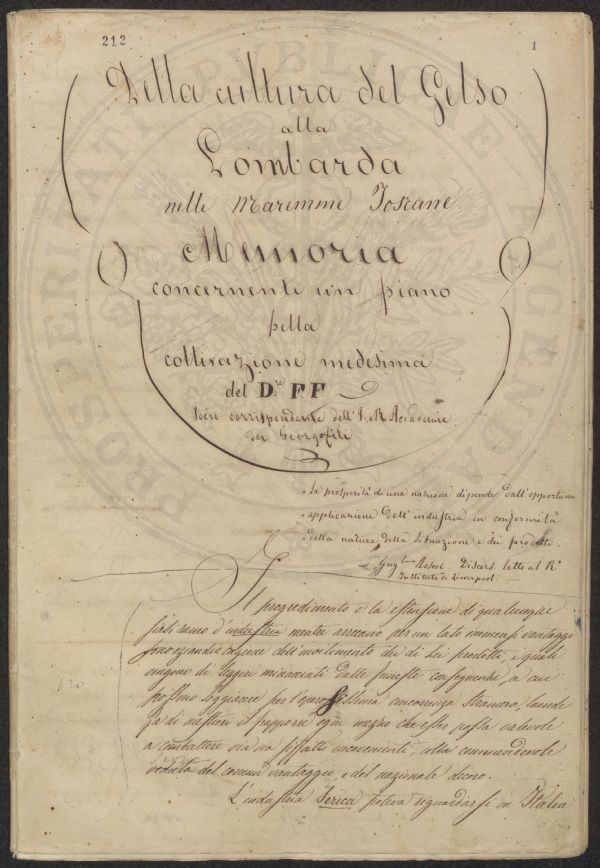 212
1
Della cultura del Gelso
alla
Lombarda
nelle Maremme Toscane
Memoria
concernente un piano
pella
coltivazione medesima
del D.re F F
Socio corrispondente dell'I. R. Accademia
dei Georgofili
PROSPERITATI PUBLICAE AUGENDAE
"La prosperità di una nazione dipende dall'opportuna
"applicazione dell'industria in conformità
"della natura della situazione e dei prodotti.
Gugl.mo Roscoe. Discors. letto al R.o
Instituto di Liverpool.
Il progredimento e la estensione di qualunque
siasi ramo d'industria mentre arrecano per un lato immensi vantaggi
sono eziandio cagione dell'invilimento dei di lei prodotti, i quali
vengono di leggeri minacciati dalle funeste conseguenze, a cui
possono soggiacere per l' concorrenza straniera, laonde
fa di mestieri il frapporre ogni mezzo che esser possa valevole
a combattere via un siffatto inconveniente, alla commendevole
veduta del comun vantaggio, e del nazionale decoro.
L'industria Serica poteva riguardarsi in Italia